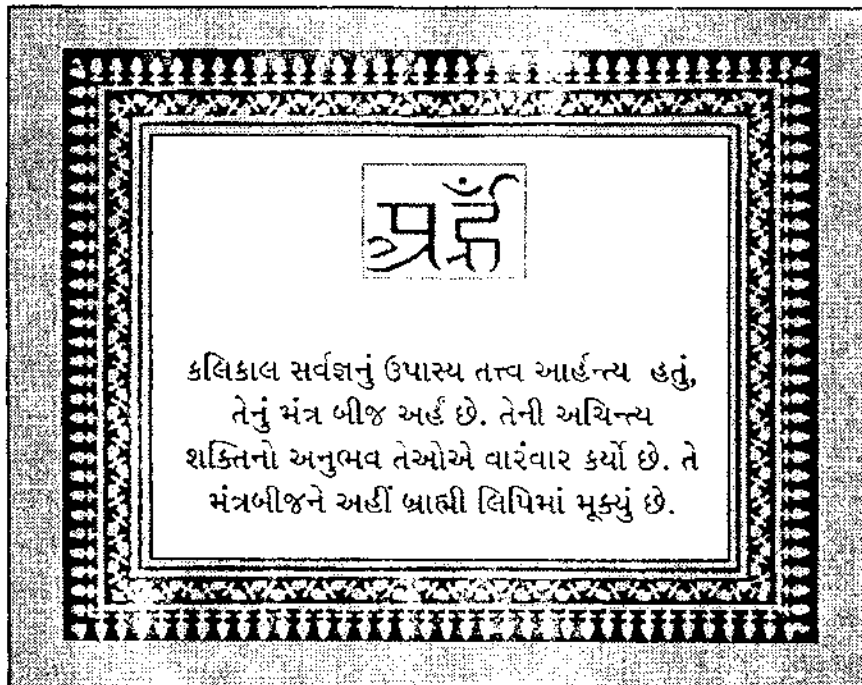 કલિકાલ સર્વજ્ઞનું ઉપાસ્ય તત્ત્વ આર્હન્ત્ય હતું,
તેનું મંત્ર બીજ અર્હં છે. તેની અચિન્ત્ય
શક્તિનો અનુભવ તેઓએ વારંવાર કર્યો છે. તે
મંત્રબીજને અહીં બ્રાહ્મી લિપિમાં મૂક્યું છે.